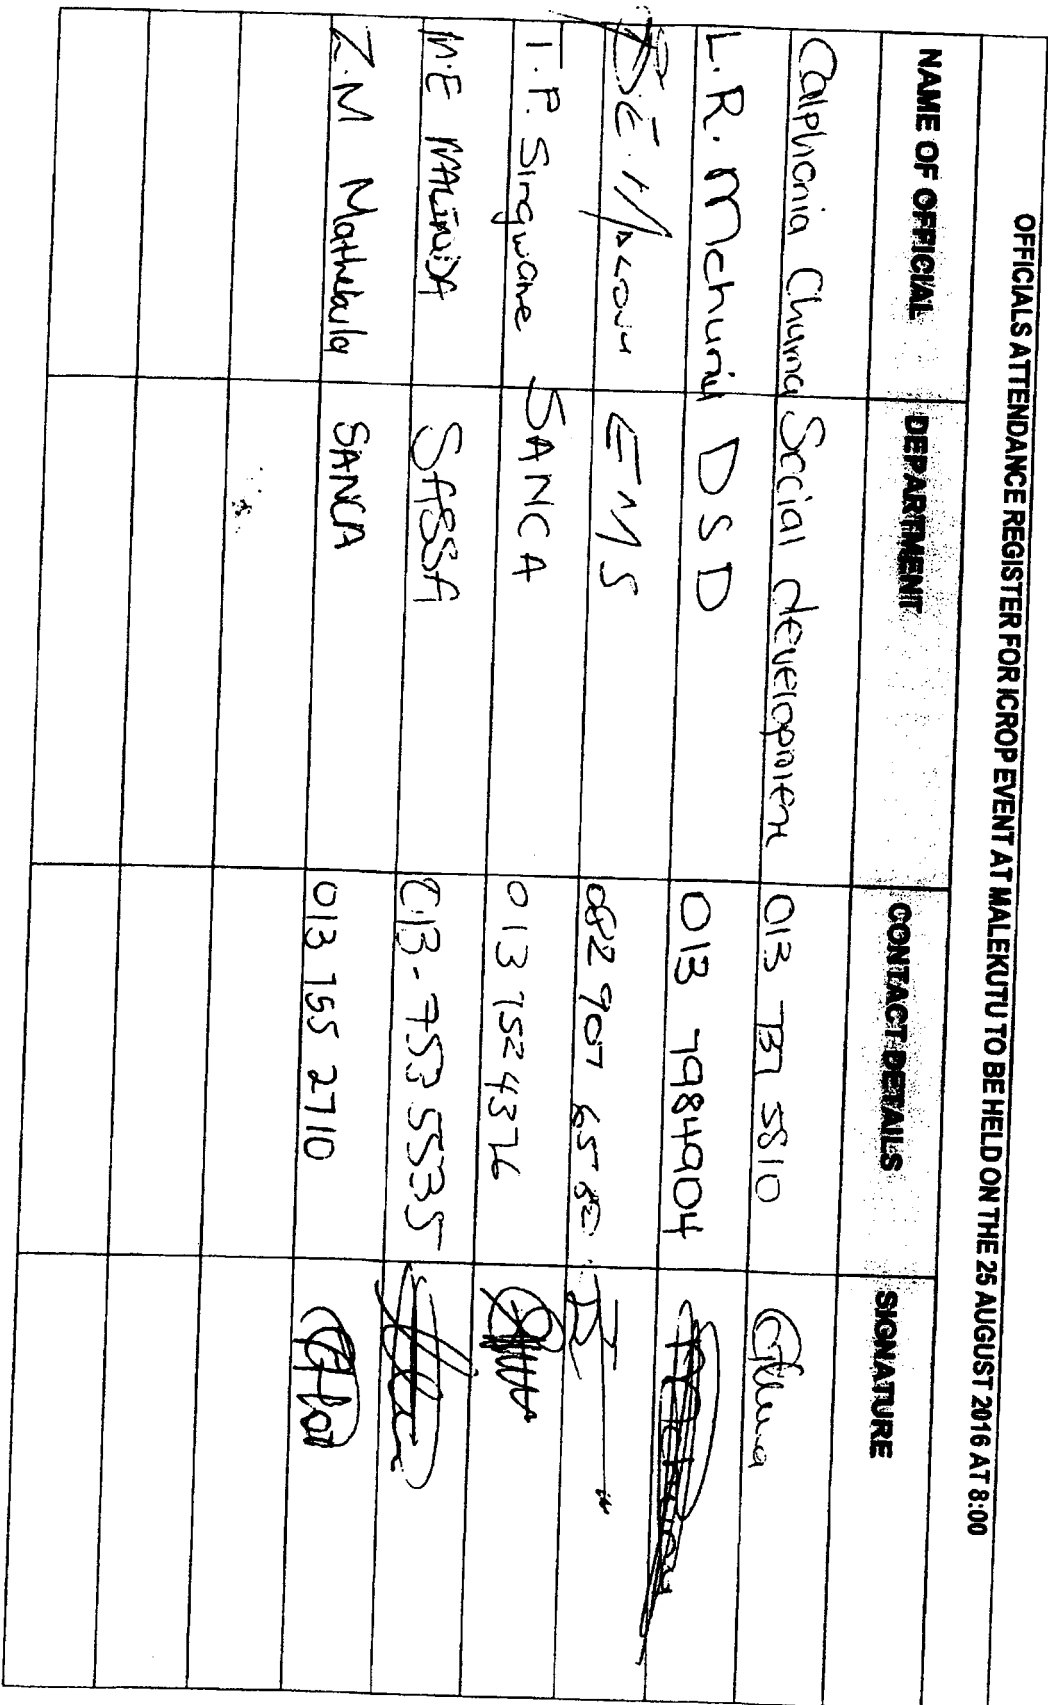 OFFICIALS ATTENDANCE REGISTER FOR ICROP EVENT AT MALEKUTU TO BE HELD ON THE 25 AUGUST 2016 AT 8:00
NAME OF OFFICIAL DEPARTMENT CONTACT DETAILS SIGNATURE
Calphonia Chuma Social development 013 737 5810
L.R. Mchunu DSD 013 7984904
EMS 082 907
T.P. Singwane SANCA 013 752 4376
M.E SASSA 013-753 5535
Z.M Mathebula SANCA 013 755 2710